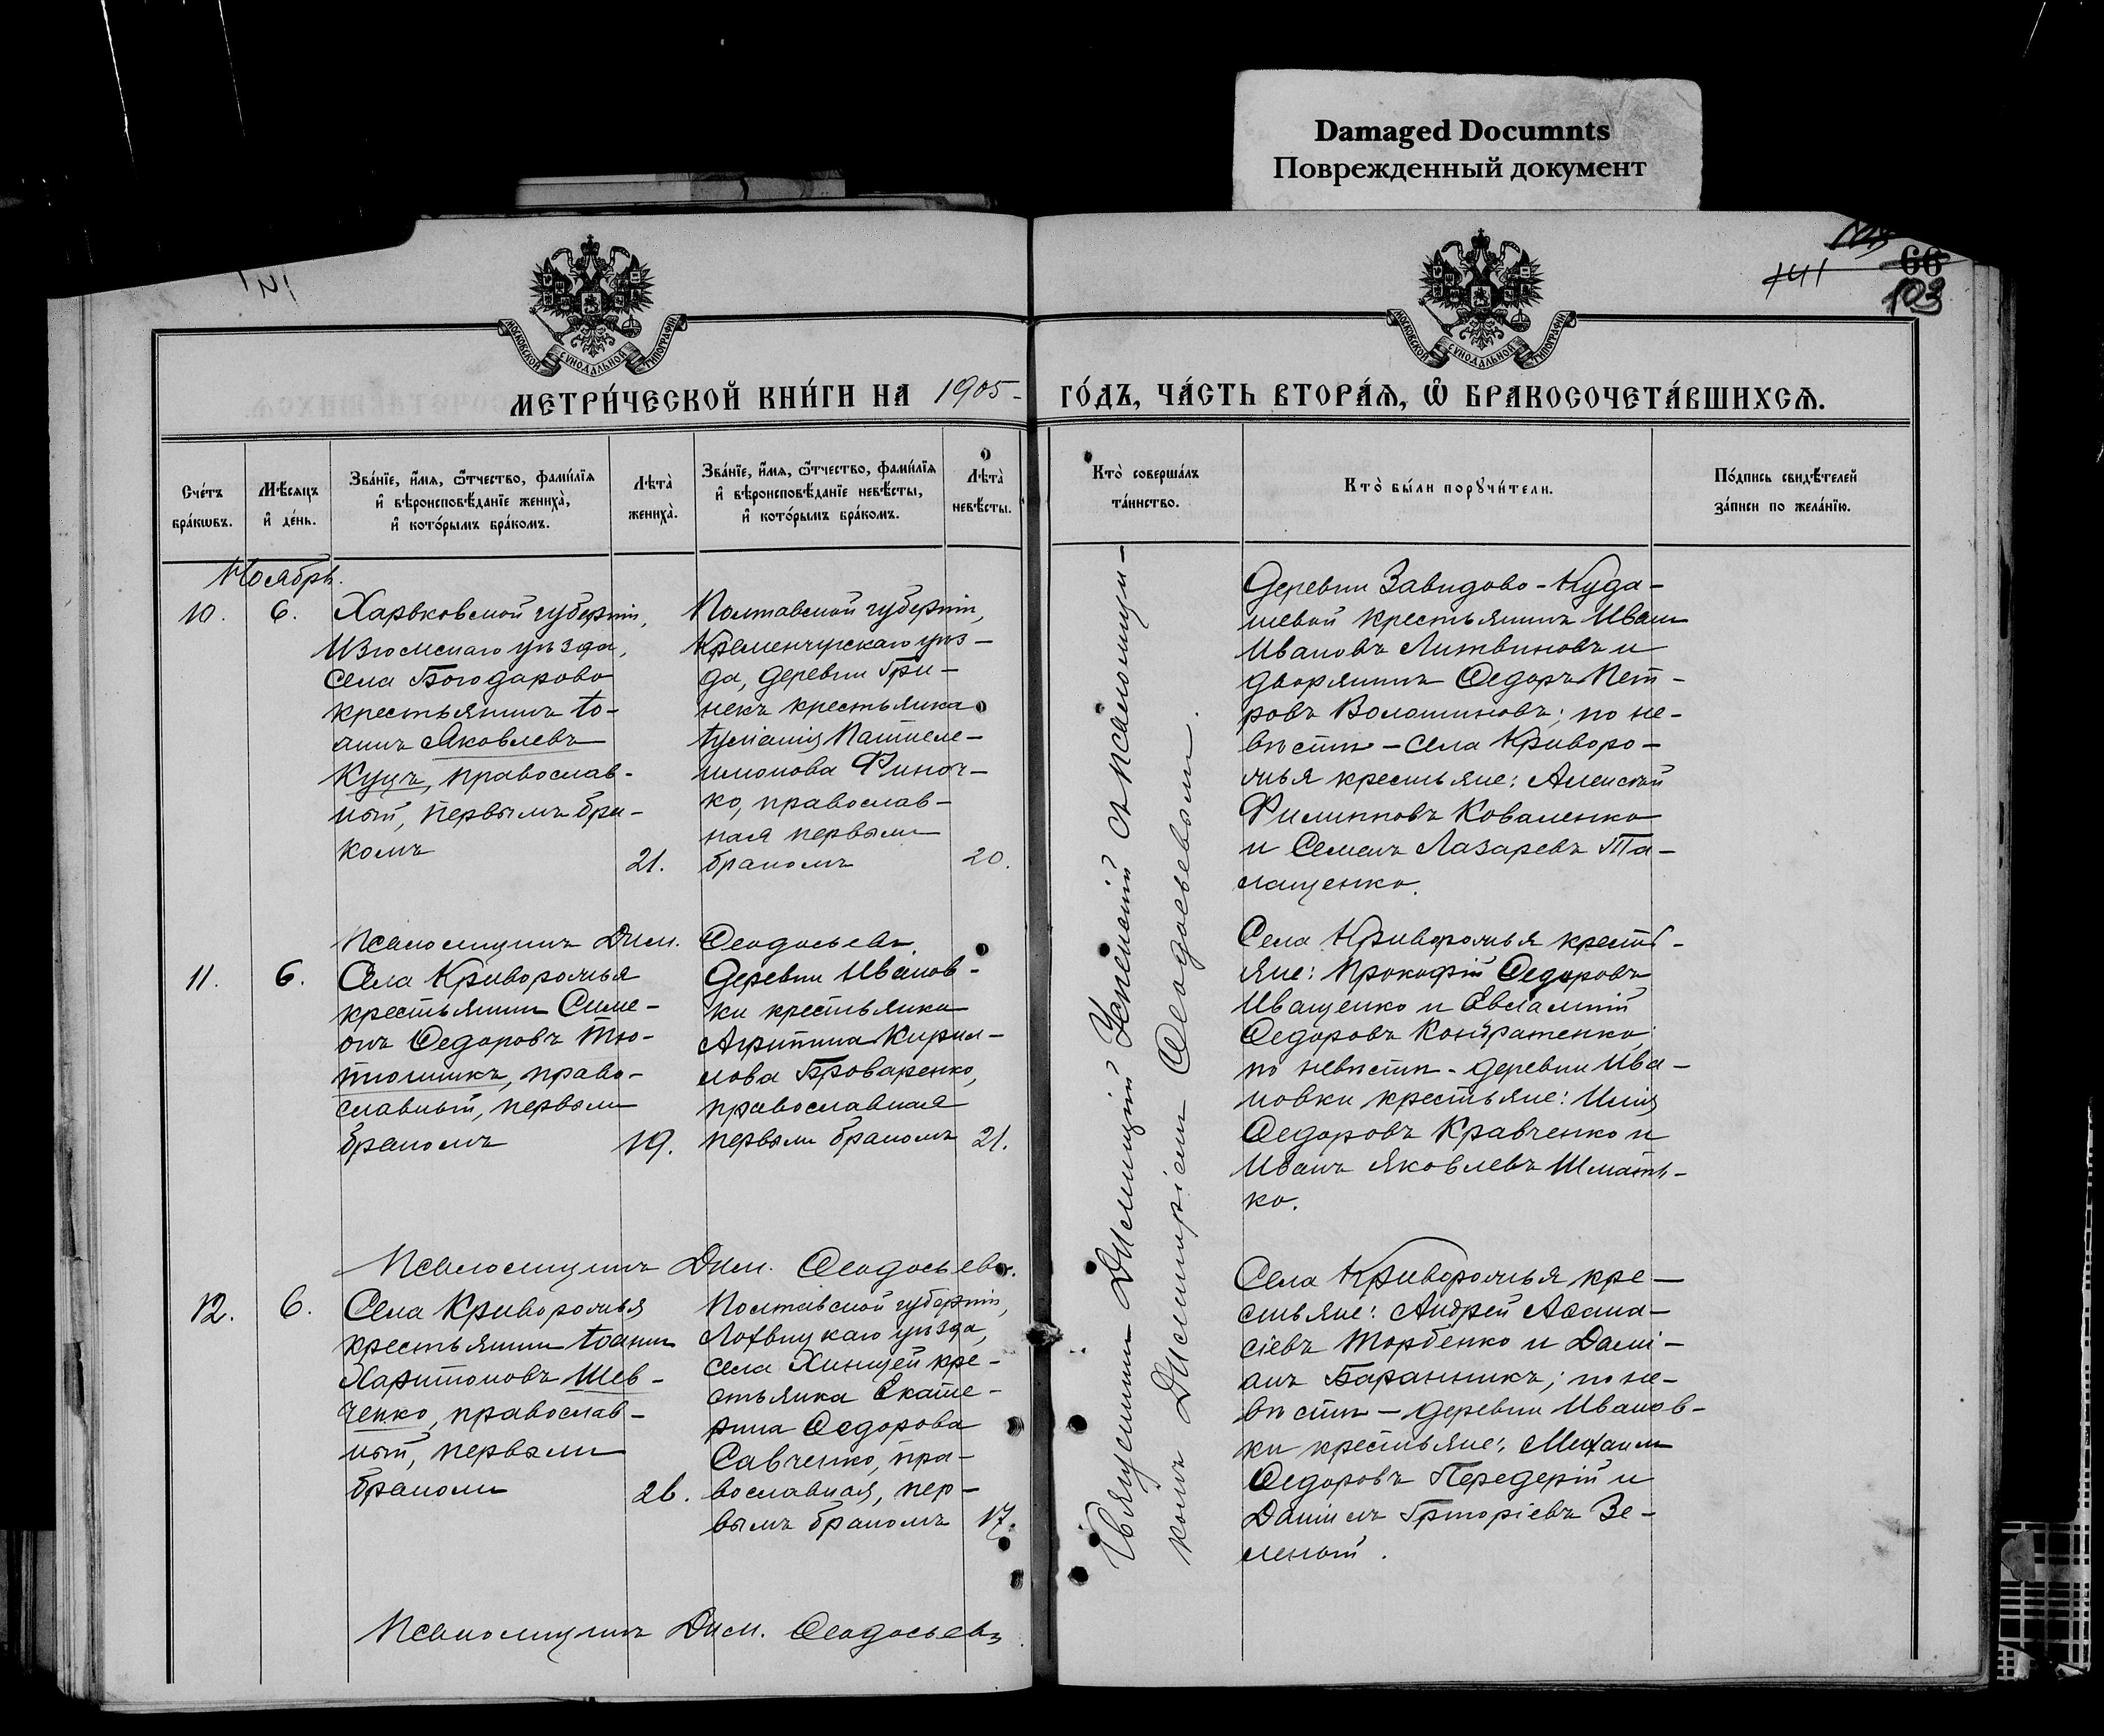 Damaged Documnts
Поврежденный документ
141
66
103
МОСКОВСКОЙ СѴНОДАЛЬНОЙ ТИПОГРАФІИ
МОСКОВСКОЙ СѴНОДАЛЬНОЙ ТИПОГРАФІИ
МЕТРИ́ЧЕСКОЙ КНИ́ГИ НА 1905 ГО́ДЪ, ЧА́СТЬ ВТОРА́Ѧ, Ѽ БРАКОСОЧЕТА́ВШИХСѦ.
Сче́тъ
бра́кѡвъ.
Мѣ́сѧцъ
и҆ де́нь.
Зва́нїе, и҆́мѧ, ѻ҆́тчество, фами́лїѧ
и҆ вѣроисповѣ́данїе жениха̀,
и҆ кото́рымъ бра́комъ.
Лѣта̀
жениха̀.
Зва́нїе, и҆́мѧ, ѻ҆́тчество, фами́лїѧ
и҆ вѣроисповѣ́данїе невѣ́сты,
и҆ кото́рымъ бра́комъ.
Лѣта̀
невѣ́сты.
Кто̀ соверша́лъ
та́инство.
Кто̀ бы́ли порꙋчи́тели.
По́дпись свидѣ́телей
за́писи по жела́нїю.
Ноябрь.
10.
6.
Харьковской губерніи,
Изюмскаго уѣзда,
села Богодарово
крестьянинъ Іо-
аннъ Яковлевъ
Куцъ, православ-
ный, первымъ бра-
комъ
21.
Полтавской губерніи,
Кременчугскаго уѣз-
да, деревни Гри-
некъ крестьянка
Іуліанія Пантеле-
имонова Финоч-
ко, православ-
ная первымъ
бракомъ
20.
Священникъ Димитрій Успенскій съ псаломщи-
комъ Димитріемъ Ѳеодосьевымъ.
Деревни Завидово-Куда-
шевой крестьянинъ Иванъ
Ивановъ Литвиновъ и
дворянинъ Ѳедоръ Пет-
ровъ Волошиновъ; по не-
вѣстѣ - села Криворо-
жья крестьяне: Алексѣй
Филипповъ Коваленко
и Семенъ Лазаревъ Та-
лащенко.
Псаломщикъ Дим. Ѳеодосьевъ
11.
6.
Села Криворожья
крестьянинъ Симе-
онъ Ѳедоровъ Тю-
тюнникъ, право-
славный, первымъ
бракомъ
19.
Деревни Иванов-
ки крестьянка
Агрипина Кирил-
лова Броваренко,
православная
первымъ бракомъ
21.
Села Криворожья кресть-
яне: Прокофій Ѳедоровъ
Иващенко и Евлампій
Ѳедоровъ Кондратенко;
по невѣстѣ - деревни Ива-
новки крестьяне: Илія
Ѳедоровъ Кравченко и
Иванъ Яковлевъ Шмать-
ко.
Псаломщикъ Дим. Ѳеодосьевъ.
12.
6.
Села Криворожья
крестьянинъ Іоаннъ
Харитоновъ Шев-
ченко, православ-
ный, первымъ
бракомъ
26.
Полтавской губерніи,
Лохвицкаго уѣзда,
села Хинцей кре-
стьянка Екате-
рина Ѳедорова
Савченко, пра-
вославная, пер-
вымъ бракомъ
17.
Села Криворожья кре-
стьяне: Андрей Аѳана-
сіевъ Торбенко и Дамі-
анъ Баранникъ; по не-
вѣстѣ - деревни Иванов-
ки крестьяне: Михаилъ
Ѳедоровъ Передерій и
Даніилъ Григоріевъ Зе-
леный.
Псаломщикъ Дим. Ѳеодосьевъ